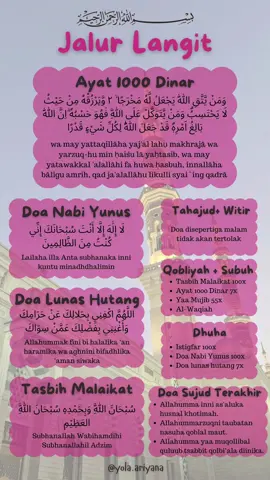 بِسْمِ اللَّهِ الرَّحْمَنِ الرَّحِيمِ
Jalur Langit
Ayat 1000 Dinar
وَمَنْ يَّتَّقِ اللّٰهَ يَجْعَلْ لَّهٗ مَخْرَجًا ۙ ٢ وَّيَرْزُقْهُ مِنْ حَيْثُ
لَا يَحْتَسِبُ وَمَنْ يَّتَوَكَّلْ عَلَى اللّٰهِ فَهُوَ حَسْبُهٗ اِنَّ اللّٰهَ
بَالِغُ اَمْرِهٖ قَدْ جَعَلَ اللّٰهُ لِكُلِّ شَيْءٍ قَدْرًا
wa may yattaqillāha yaj'al lahu makhrajā wa
yarzuq-hu min ḥaiṡu la yaḥtasib, wa may
yatawakkal 'alallāhi fa huwa ḥasbuh, innallāha
bāligu amrih, qad ja'alallāhu likulli syai`ing qadrā
Doa Nabi Yunus
لَا إِلَهَ إِلَّا أَنْتَ سُبْحَانَكَ إِنِّي
كُنْتُ مِنَ الظَّالِمِينَ
Lailaha illa Anta subhanaka inni
kuntu minadhdhalimin
Tahajud+ Witir
Doa disepertiga malam
tidak akan tertolak
Qobliyah + Subuh
Tasbih Malaikat 100x
Ayat 1000 Dinar 7x
Yaa Mujib 55x
Al-Waqiah
Doa Lunas Hutang
اَللَّهُمَّ اكْفِنِي بِحَلَالِكَ عَنْ حَرَامِكَ
وَأَغْنِنِي بِفَضْلِكَ عَمَّنْ سِوَاكَ
Allahummak fini bi halalika 'an
haramika wa aghnini bifadhlika
'aman siwaka
Dhuha
Istigfar 100x
Doa Nabi Yunus 100x
Doa lunas hutang 7x
Tasbih Malaikat
سُبْحَانَ اللَّهِ وَبِحَمْدِهِ سُبْحَانَ اللَّهِ
العَظِيْمِ
Subhanallah Wabihamdihi
Subhanallahil Adzim
Doa Sujud Terakhir
Allahumma inni as'aluka
husnal khotimah.
Allahummarzuqni taubatan
nasuha qoblal maut.
Allahumma yaa muqollibal
quluub tsabbit qolbi'ala diinika.
@yola.ariyana